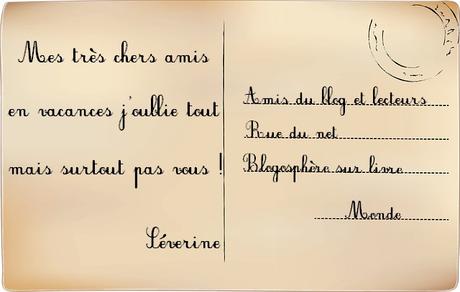 Mes très chers amis
en vacances j'oublie tout
mais surtout pas vous !
Séverine
Amis du blog et lecteurs
Rue du net
Blogosphère sur livre
Monde